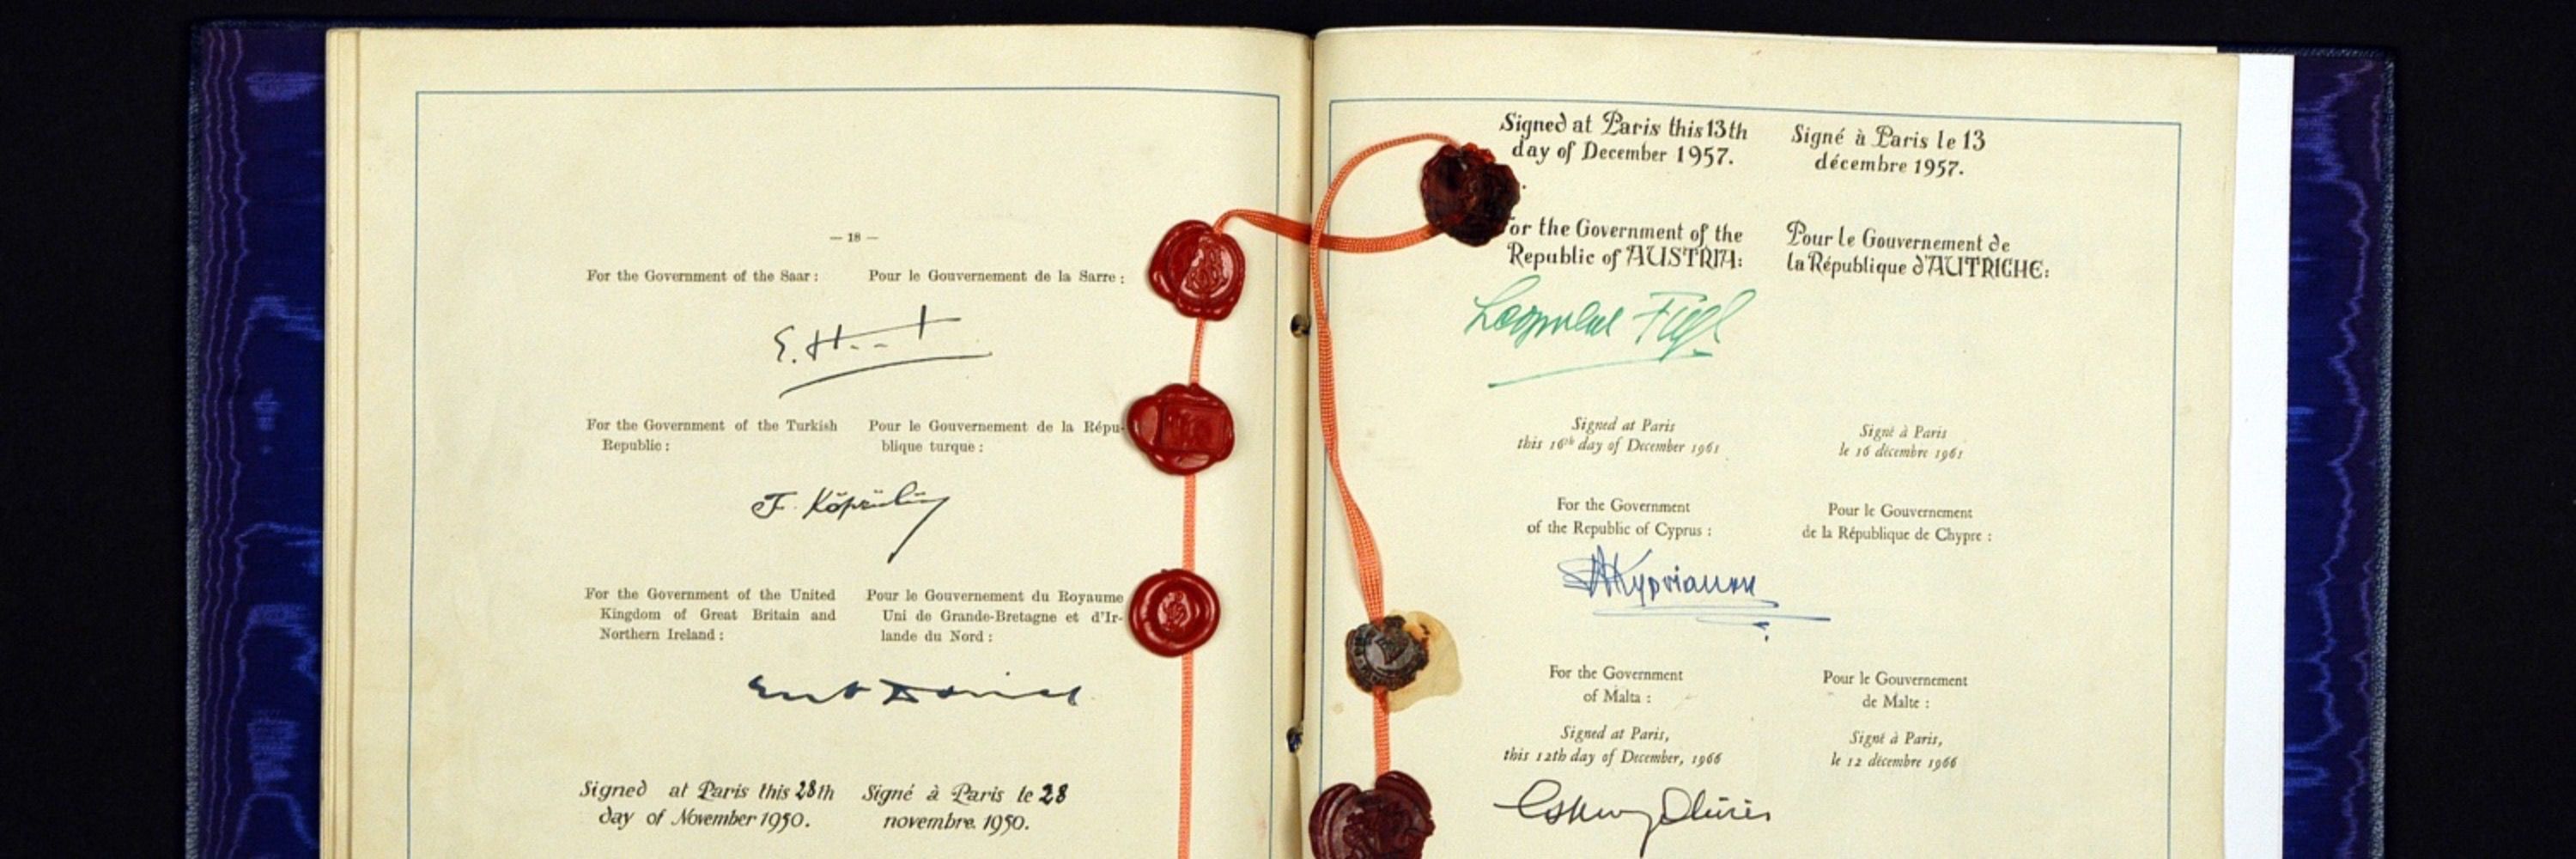 — 18 —
For the Government of the Saar : Pour le Gouvernement de la Sarre :
For the Government of the Turkish Pour le Gouvernement de la Répu-
Republic : blique turque :
F. Köprülü
For the Government of the United Pour le Gouvernement du Royaume
Kingdom of Great Britain and Uni de Grande-Bretagne et d'Ir-
Northern Ireland : lande du Nord :
Signed at Paris this 28th Signé à Paris le 28
day of November 1950. novembre 1950.
Signed at Paris this 13th Signé à Paris le 13
day of December 1957. décembre 1957.
For the Government of the Pour le Gouvernement de
Republic of AUSTRIA: la République d'AUTRICHE:
Leopold Figl
Signed at Paris Signé à Paris
this 16th day of December 1961 le 16 décembre 1961
For the Government Pour le Gouvernement
of the Republic of Cyprus : de la République de Chypre :
Kyprianou
For the Government Pour le Gouvernement
of Malta : de Malte :
Signed at Paris, Signé à Paris,
this 12th day of December, 1966 le 12 décembre 1966